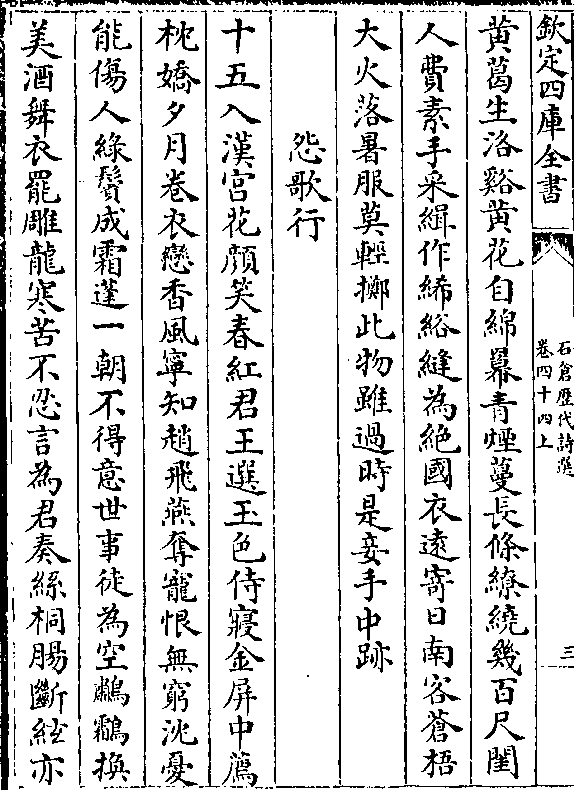 欽定四庫全書
石倉歴代詩選
卷四十四上
三
黄葛生洛谿黄花自綿羃青煙蔓長條繚繞幾百尺閨
人費素手采緝作絺綌縫為絶國衣遠寄日南客蒼梧
大火落暑服莫輕擲此物雖過時是妾手中跡
怨歌行
十五入漢宫花顔笑春紅君王選玉色侍寢金屏中薦
枕嬌夕月卷衣戀香風寧知趙飛燕奪寵恨無窮沈憂
能傷人綠鬢成霜蓬一朝不得意世事徒為空鷫鸘換
美酒舞衣罷雕龍寒苦不忍言為君奏絲桐腸斷絃亦